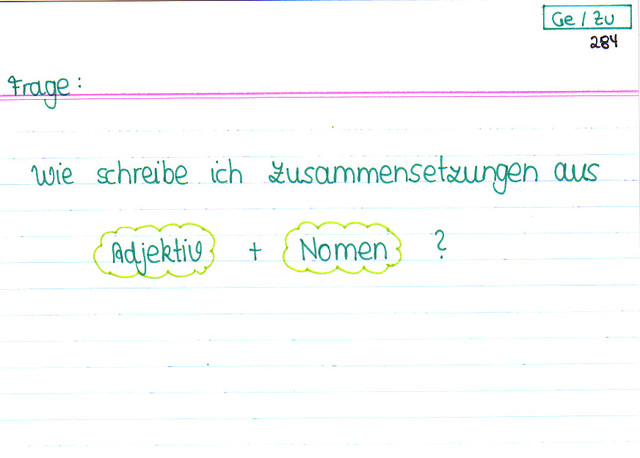 Ge / Zu
284
Frage:
Wie schreibe ich Zusammensetzungen aus
Adjektiv + Nomen ?